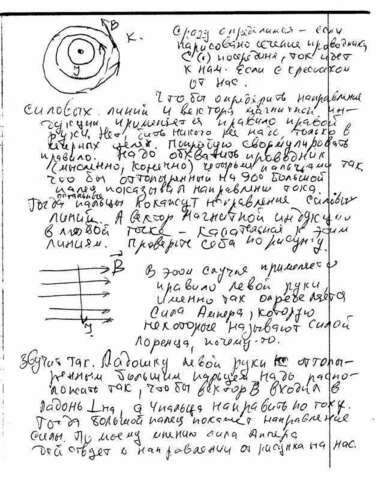 B
К.
y
Сразу определимся - если
нарисовано сечение проводника
с (·) посередине, ток идет
к нам. Если с крестиком
от нас.
Чтобы определить направление
силовых линий и вектора магнитной ин-
дукции применяется правило правой
руки. Нет, бить никого не надо, только в
мирных целях. Попробую сформулировать
правило. Надо обхватить проводник
(мысленно, конечно) четырьмя пальцами так,
что бы оттопыренный на 90° большой
палец показывал направление тока.
Тогда остальные пальцы покажут направление силовых
линий. А вектор магнитной индукции
в любой точке - касательная к этим
линиям. Проверьте себя по рисунку.
B
В этом случае применяется
правило левой руки
именно так определяется
сила Ампера, которую
некоторые называют силой
Лоренца, почему-то.
Звучит так. Ладошку левой руки с оттопы-
ренным большим пальцем надо распо-
ложить так, что бы вектор В входил в
ладонь ⊥ на, а 4 пальца направить по току.
Тогда большой палец покажет направление
силы. По моему мнению сила Ампера
действует в направлении от рисунка на нас.